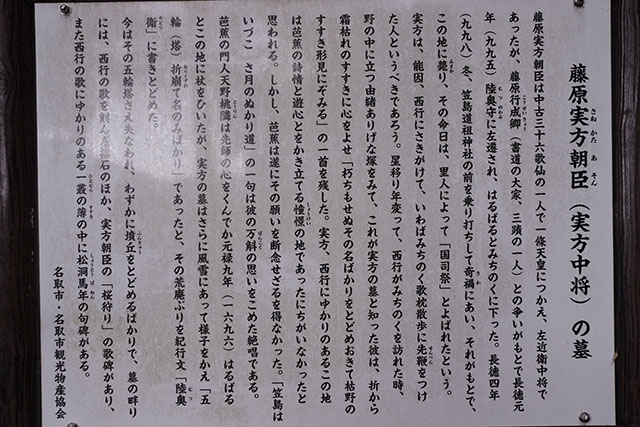 藤原実方朝臣（実方中将）の墓
さねかたあそん
藤原実方朝臣は中古三十六歌仙の一人で一條天皇につかえ、左近衛中将で
あったが、藤原行成卿（書道の大家、三蹟の一人）との争いがもとで長徳元
年（九九五）陸奥守に左遷され、はるばるとみちのくに下った。長徳四年
（九九八）冬、笠島道祖神社の前を乗り打ちして奇禍にあい、それがもとで、
この地に薨り、その命日は、里人によって「国司祭」とよばれたという。
実方は、能因、西行にさきがけて、いわばみちのく歌枕散歩に先鞭をつけ
た人というべきであろう。星移り年変って、西行がみちのくを訪れた時、
野の中に立つ由緒ありげな塚をみて、これが実方の墓と知った彼は、折から
霜枯れのすすきに心をよせ「朽ちもせぬその名ばかりをとどめおきて枯野の
すすき形見にぞみる」の一首を残した。実方、西行にゆかりのあるこの地
は芭蕉の詩情と遊心とをかき立てる憧憬の地であったにちがいなかったと
思われる。しかし、芭蕉は遂にその願いを断念せざるを得なかった。「笠島は
いづこ　さ月のぬかり道」の一句は彼の万斛の思いをこめた絶唱である。
芭蕉の門人天野桃隣は先師の心をくんでか元禄九年（一六九六）はるばる
とこの地に杖をひいたが、実方の墓はさらに風雪にあって様子をかえ「五
輪（塔）折崩て名のみばかり」であったと、その荒廃ぶりを紀行文「陸奥
衛」に書きとどめた。
今はその五輪塔さえ失なわれ、わずかに墳丘をとどめるばかりで、墓の畔り
には、西行の歌を刻んだ碑石のほか、実方朝臣の「桜狩り」の歌碑があり、
また西行の歌にゆかりのある一叢の薄の中に松洞馬年の句碑がある。
名取市・名取市観光物産協会